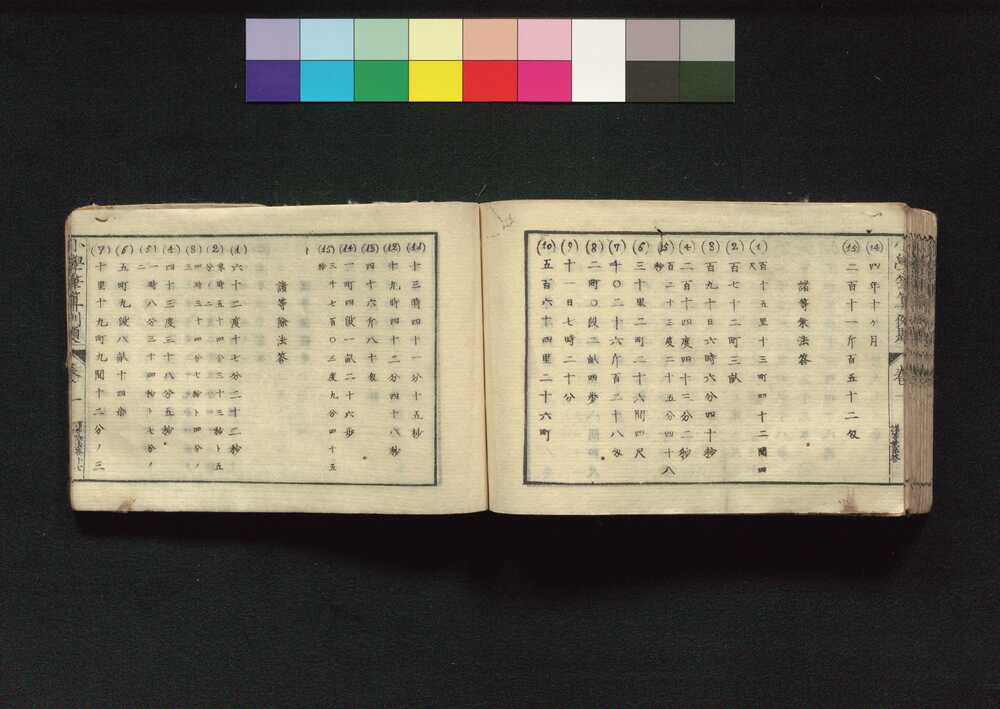 (14) 四年十ヶ月
(15) 二百十一斤百五十二匁
諸等乘法答
(1) 百十五里十三町四十二間四尺
(2) 百七十二町三畝
(3) 百九十日六時六分四十秒
(4) 二百十四度四十三分二秒
(5) 百二十三度二十五分四十八秒
(6) 三十里二町二十六間四尺
(7) 千〇二十六斤百三十八匁
(8) 二町〇段二畝四歩
(9) 十一日七時二十分
(10) 五百六十四里二十六町
(11) 十三時四十一分十五秒
(12) 十九時四十二分四十八秒
(13) 四十六斤八十匁
(14) 一町四段一畝二十六歩
(15) 三千七百〇三度九分四十五秒
諸等除法答
(1) 六十二度十七分二十三秒
(2) 零時五十三分三十三秒ト五分ノ二
(3) 四時三十四分七秒ト四分ノ三
(4) 四十三度三十八分五秒
(5) 一時八分三十四秒ト七分ノ二
(6) 五町九段八畝十四歩
(7) 十里十九町九間十二分ノ三
小學筆算例題 卷一